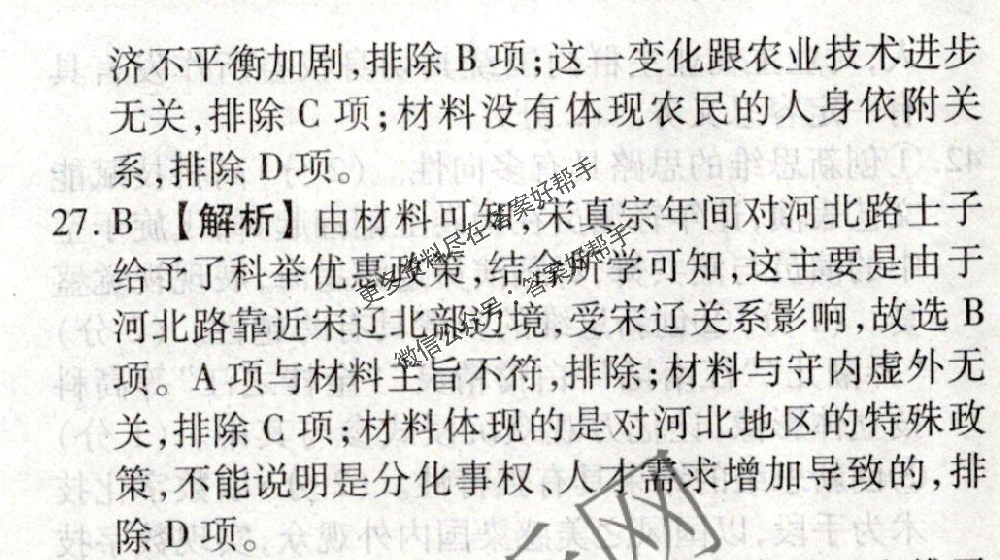 济不平衡加剧,排除 B 项;这一变化跟农业技术进步
无关,排除 C 项;材料没有体现农民的人身依附关
系,排除 D 项。
27. B 【解析】由材料可知,宋真宗年间对河北路士子
给予了科举优惠政策,结合所学可知,这主要是由于
河北路靠近宋辽北部边境,受宋辽关系影响,故选 B
项。A 项与材料主旨不符,排除;材料与守内虚外无
关,排除 C 项;材料体现的是对河北地区的特殊政
策,不能说明是分化事权、人才需求增加导致的,排
除 D 项。
更多资料尽在答案好帮手
微信公众号:答案好帮手
网